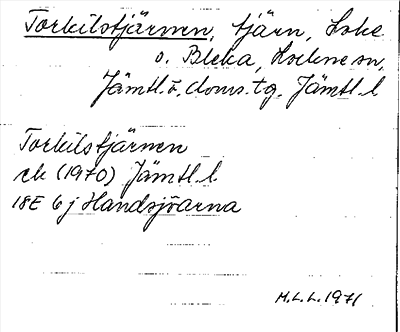 Torkilstjärnen, tjärn, Loke
o. Bleka, Lockne sn,
Jämtl. ö. doms. tg. Jämtl. l
Torkilstjärnen
ek (1970) Jämtl. l.
18E 6j Handsjöarna
M.L.L. 1971